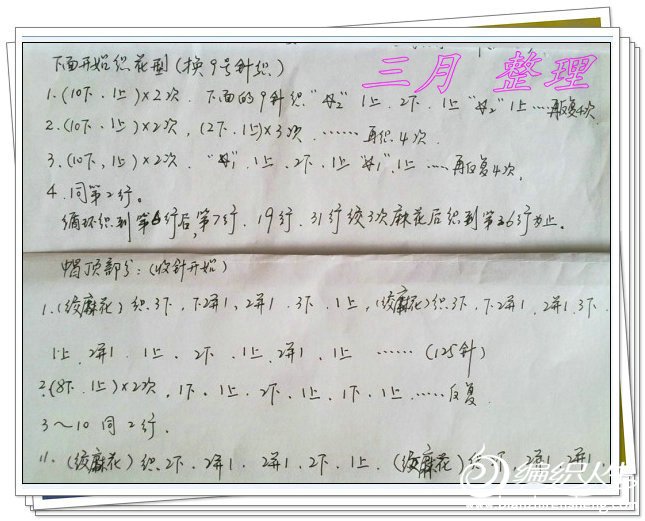 三月 整理
下面开始织花型(换9号针织)
1.(10下、1上)×2次、下面的9针织"如2"1上、2下、1上"如2"1上……再反复4次
2.(10下、1上)×2次,(2下、1上)×3次……再织4次.
3.(10下,1上)×2次."如1"、1上、2下、1上"如1"、1上……再反复4次,
4.同第2行。
循环织到第6行后,第7行、19行、31行绞3次麻花后织到第36行为止。
帽顶部分:(收针开始)
1.(绞麻花)织3下、下2并1,2并1、3下、1上,(绞麻花)织3下、下2并1,2并1、3下、
1上、2并1、1上、2下、1上、2并1、1上……(125针)
2.(8下、1上)×2次,1下、1上、2下、1上、1下、1上……反复
3~10同2行.
11.(绞麻花)织2下、2并1、2并1、2下、1上、(绞麻花) 2并1 2并1
编织人生